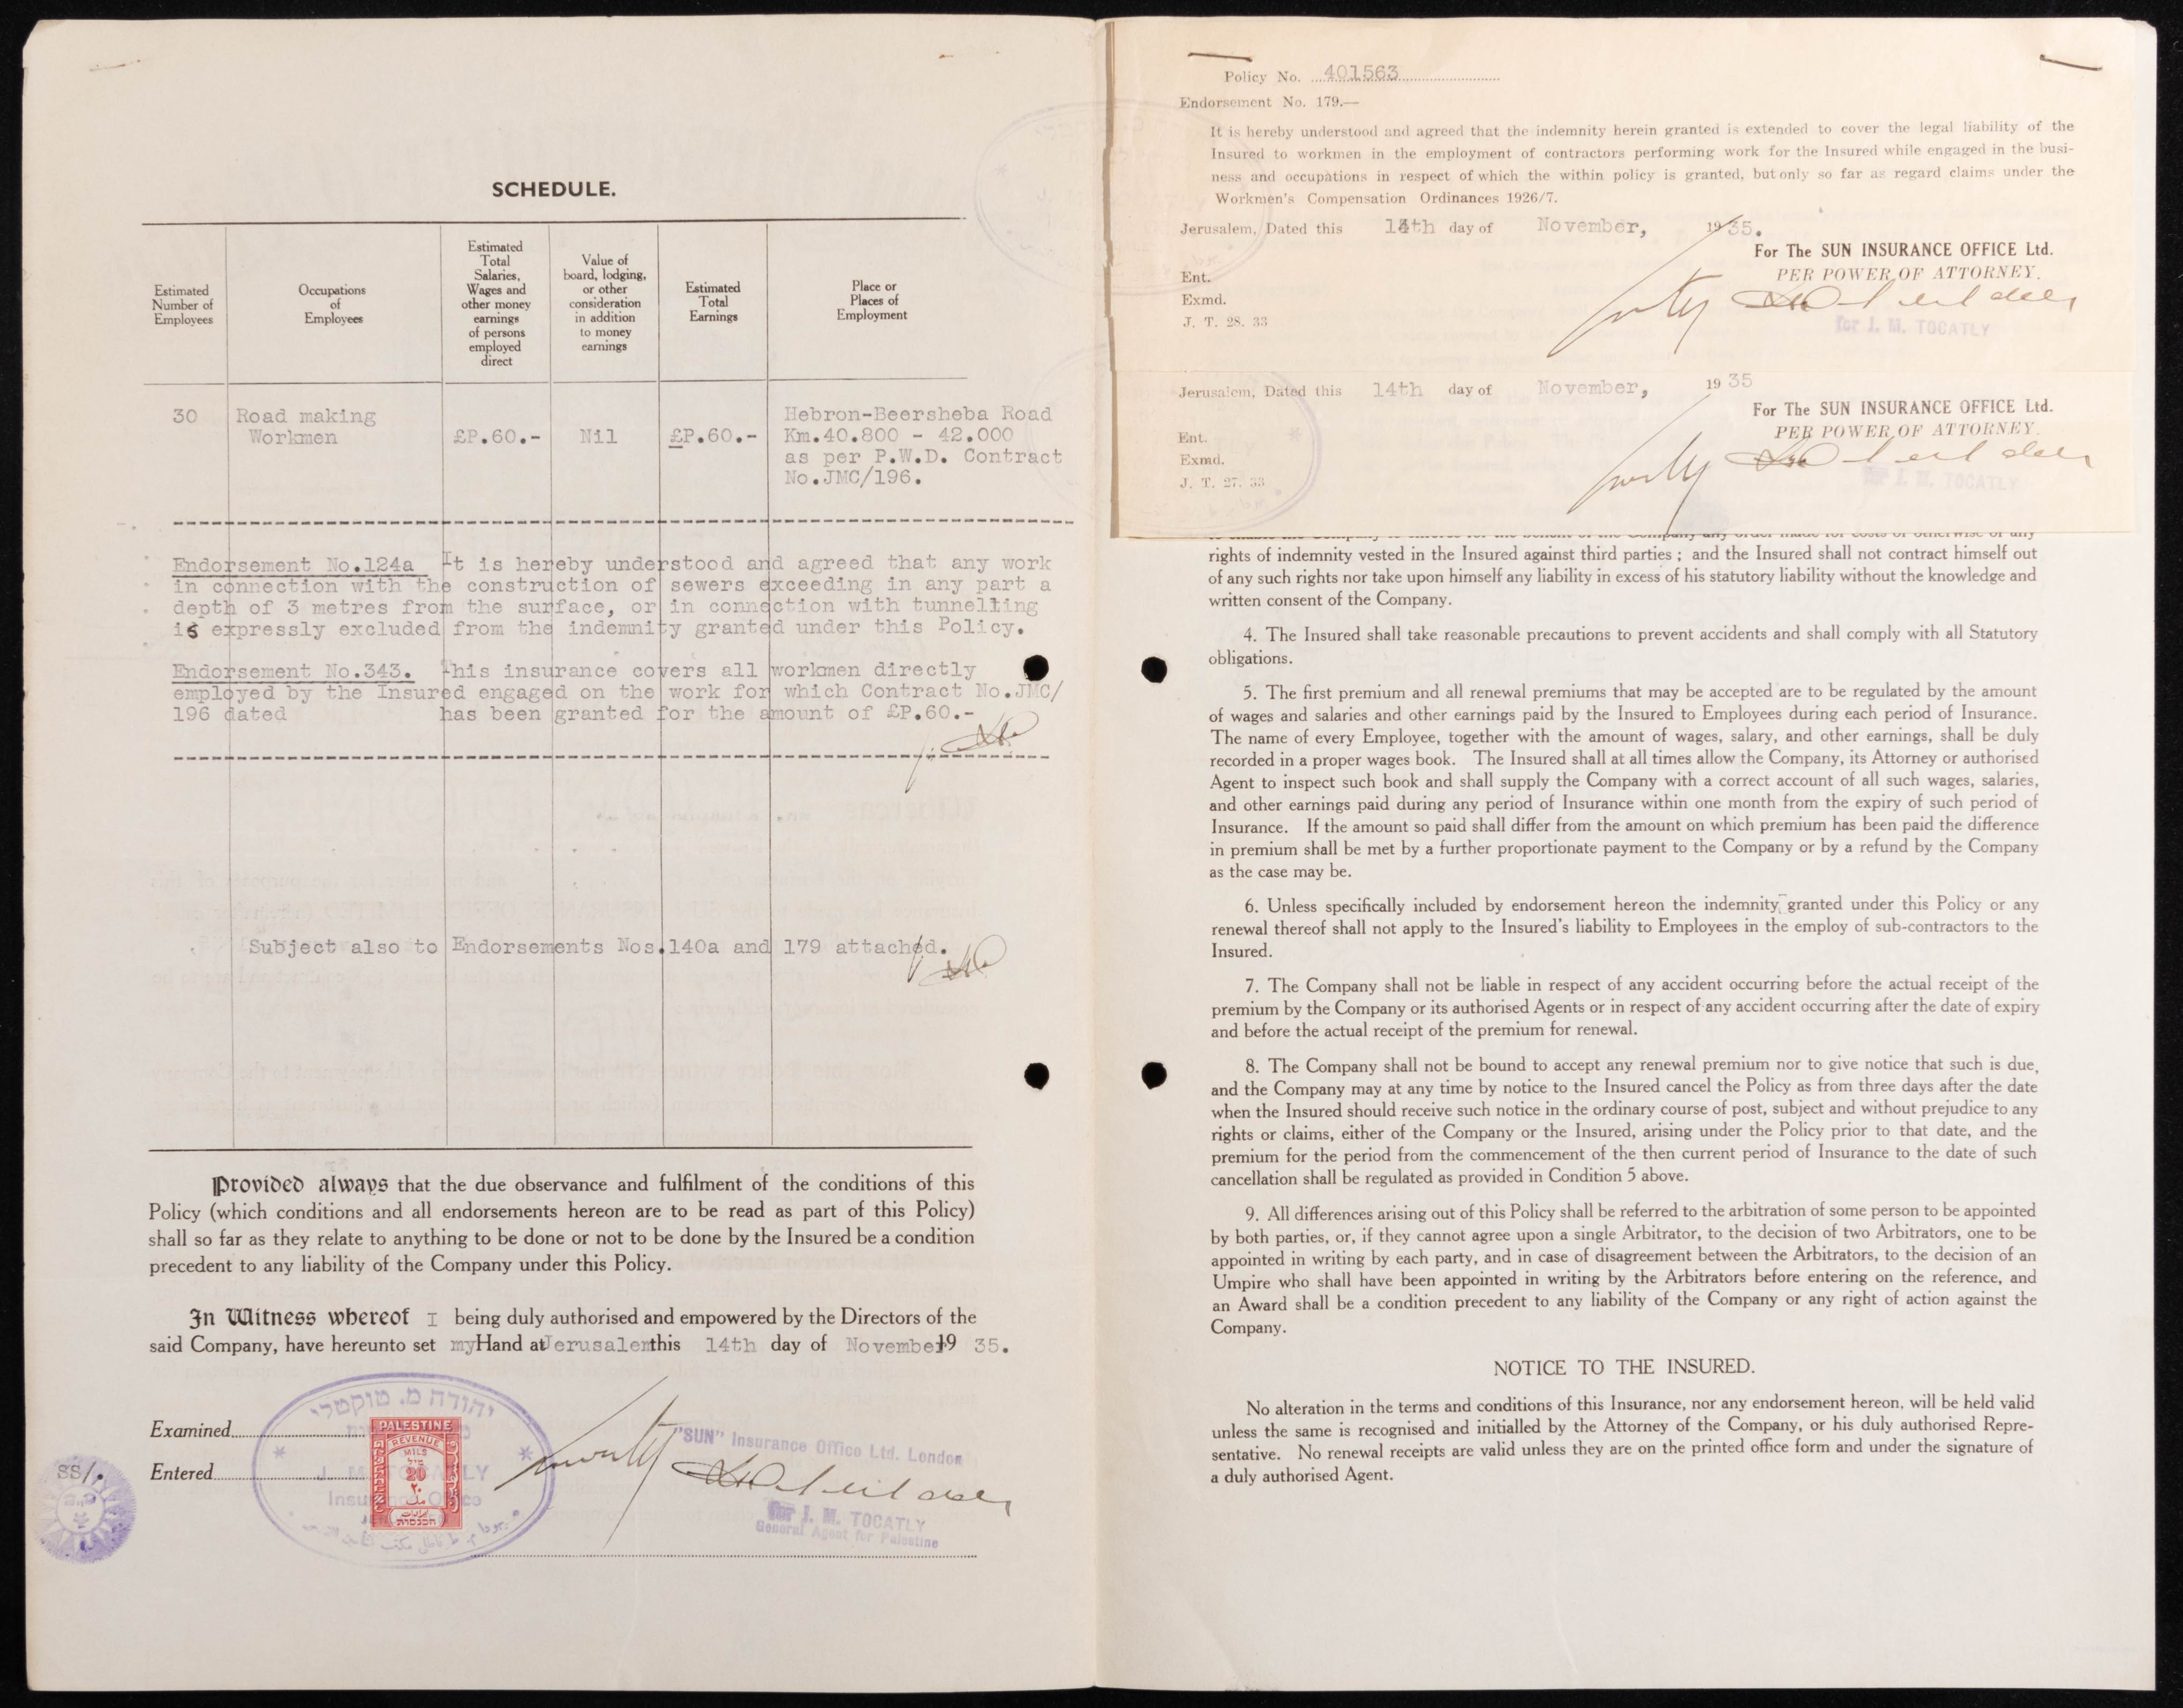 SCHEDULE.
Estimated Number of Employees
Occupations of Employees
Estimated Total Salaries, Wages and other money earnings of persons employed direct
Value of board, lodging, or other consideration in addition to money earnings
Estimated Total Earnings
Place or Places of Employment
30
Road making Workmen
£P.60.-
Nil
£P.60.-
Hebron-Beersheba Road
Km.40.800 - 42.000
as per P.W.D. Contract
No.JMC/196.
Endorsement No.124a It is hereby understood and agreed that any work
in connection with the construction of sewers exceeding in any part a
depth of 3 metres from the surface, or in connection with tunnelling
is expressly excluded from the indemnity granted under this Policy.
Endorsement No.343. This insurance covers all workmen directly
employed by the Insured engaged on the work for which Contract No.JMC/
196 dated has been granted for the amount of £P.60.-
Subject also to Endorsements Nos.140a and 179 attached.
Provided always that the due observance and fulfilment of the conditions of this
Policy (which conditions and all endorsements hereon are to be read as part of this Policy)
shall so far as they relate to anything to be done or not to be done by the Insured be a condition
precedent to any liability of the Company under this Policy.
In Witness whereof I being duly authorised and empowered by the Directors of the
said Company, have hereunto set my Hand at Jerusalem this 14th day of November 19 35.
Examined
Entered
SS/.
יהודה מ. טוקטלי
J. M. TOCATLY
Insurance Office
PALESTINE
REVENUE
MILS
מיל
20
٢٠
مل
הכנסות
"SUN" Insurance Office Ltd. London
for J. M. TOCATLY
General Agent for Palestine
Policy No. 401563
Endorsement No. 179.—
It is hereby understood and agreed that the indemnity herein granted is extended to cover the legal liability of the
Insured to workmen in the employment of contractors performing work for the Insured while engaged in the busi-
ness and occupations in respect of which the within policy is granted, but only so far as regard claims under the
Workmen's Compensation Ordinances 1926/7.
Jerusalem, Dated this 14th day of November, 19 35.
For The SUN INSURANCE OFFICE Ltd.
PER POWER OF ATTORNEY.
Ent.
Exmd.
J. T. 28. 33
for J. M. TOCATLY
Jerusalem, Dated this 14th day of November, 19 35
For The SUN INSURANCE OFFICE Ltd.
PER POWER OF ATTORNEY.
Ent.
Exmd.
J. T. 27. 33
for J. M. TOCATLY
rights of indemnity vested in the Insured against third parties ; and the Insured shall not contract himself out
of any such rights nor take upon himself any liability in excess of his statutory liability without the knowledge and
written consent of the Company.
4. The Insured shall take reasonable precautions to prevent accidents and shall comply with all Statutory
obligations.
5. The first premium and all renewal premiums that may be accepted are to be regulated by the amount
of wages and salaries and other earnings paid by the Insured to Employees during each period of Insurance.
The name of every Employee, together with the amount of wages, salary, and other earnings, shall be duly
recorded in a proper wages book. The Insured shall at all times allow the Company, its Attorney or authorised
Agent to inspect such book and shall supply the Company with a correct account of all such wages, salaries,
and other earnings paid during any period of Insurance within one month from the expiry of such period of
Insurance. If the amount so paid shall differ from the amount on which premium has been paid the difference
in premium shall be met by a further proportionate payment to the Company or by a refund by the Company
as the case may be.
6. Unless specifically included by endorsement hereon the indemnity granted under this Policy or any
renewal thereof shall not apply to the Insured's liability to Employees in the employ of sub-contractors to the
Insured.
7. The Company shall not be liable in respect of any accident occurring before the actual receipt of the
premium by the Company or its authorised Agents or in respect of any accident occurring after the date of expiry
and before the actual receipt of the premium for renewal.
8. The Company shall not be bound to accept any renewal premium nor to give notice that such is due,
and the Company may at any time by notice to the Insured cancel the Policy as from three days after the date
when the Insured should receive such notice in the ordinary course of post, subject and without prejudice to any
rights or claims, either of the Company or the Insured, arising under the Policy prior to that date, and the
premium for the period from the commencement of the then current period of Insurance to the date of such
cancellation shall be regulated as provided in Condition 5 above.
9. All differences arising out of this Policy shall be referred to the arbitration of some person to be appointed
by both parties, or, if they cannot agree upon a single Arbitrator, to the decision of two Arbitrators, one to be
appointed in writing by each party, and in case of disagreement between the Arbitrators, to the decision of an
Umpire who shall have been appointed in writing by the Arbitrators before entering on the reference, and
an Award shall be a condition precedent to any liability of the Company or any right of action against the
Company.
NOTICE TO THE INSURED.
No alteration in the terms and conditions of this Insurance, nor any endorsement hereon, will be held valid
unless the same is recognised and initialled by the Attorney of the Company, or his duly authorised Repre-
sentative. No renewal receipts are valid unless they are on the printed office form and under the signature of
a duly authorised Agent.